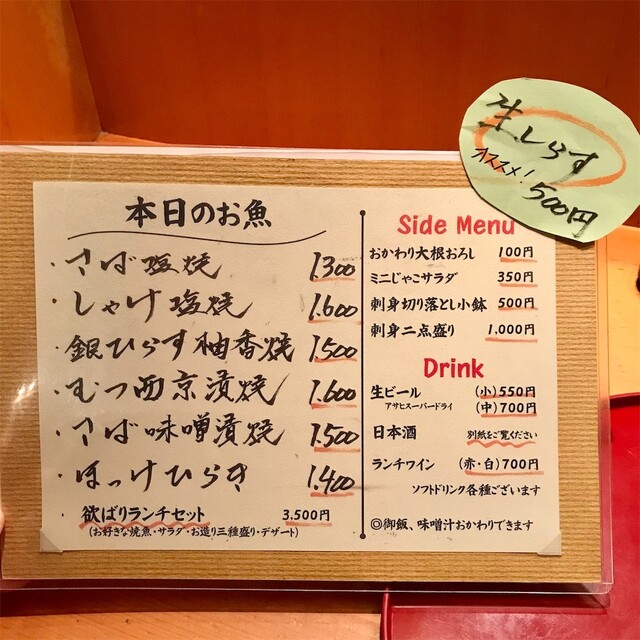 生しらす
オススメ！
500円
本日のお魚
・さば塩焼 1.300
・しゃけ塩焼 1.600
・銀ひらす柚香焼 1.500
・むつ西京漬焼 1.600
・さば味噌漬焼 1.500
・ほっけひらき 1.400
欲ばりランチセット 3.500円
（お好きな焼魚・サラダ・お造り三種盛り・デザート）
Side Menu
おかわり大根おろし 100円
ミニじゃこサラダ 350円
刺身切り落とし小鉢 500円
刺身二点盛り 1.000円
Drink
生ビール （小）550円
アサヒスーパードライ （中）700円
日本酒 別紙をご覧ください
ランチワイン （赤・白）700円
ソフトドリンク各種ございます
◎御飯、味噌汁おかわりできます